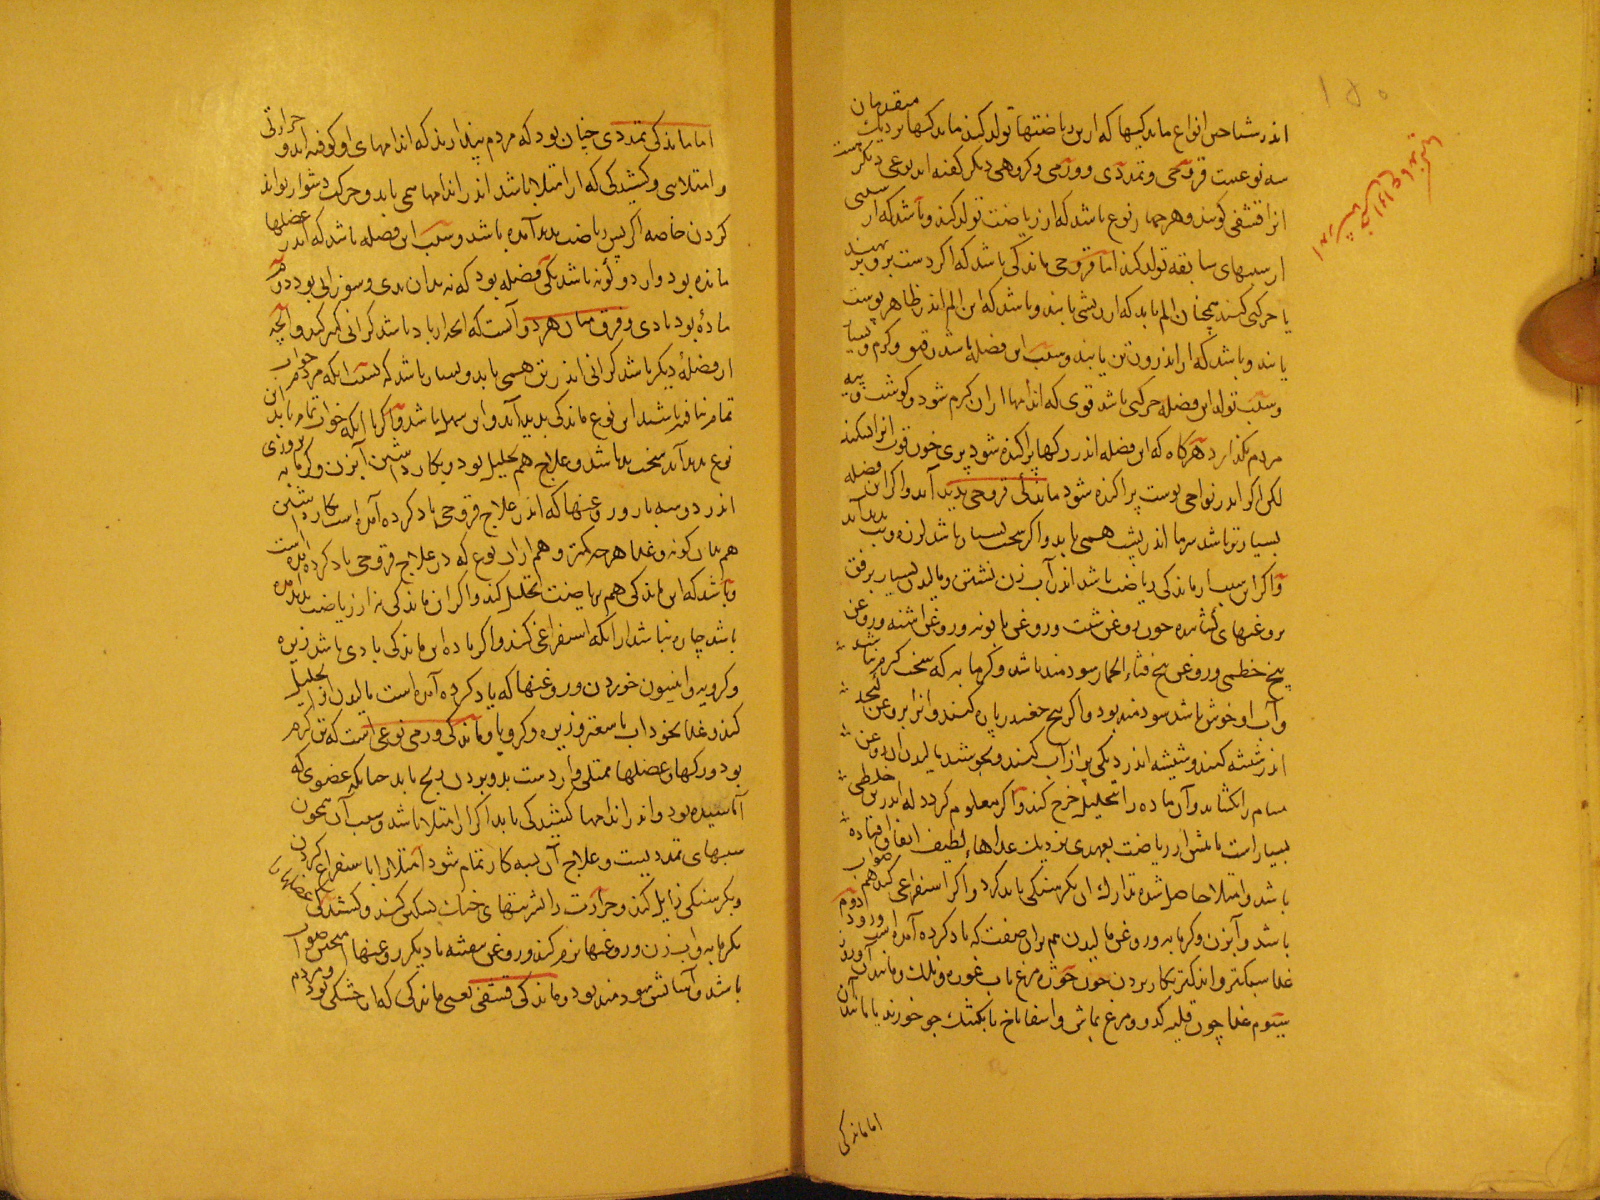 اندر شناختن انواع ماندگیها که از پس ریاضتها تولد کند ماندگیها نزدیک متقدمان
سه نوعست قروحی و تمددی و ورمی و گروهی دیگر گفته اند نوعی دیگر هست
انرا قشفی گویند و هر چهار نوع باشد که از ریاضت تولد کند و باشد که از سببی
از سببهای سابقه تولد کند اما قروحی ماندگی باشد که اگر دست برو بر نهند
یا حرکتی کنند همچنان الم یابد که از ریشی یابند و باشد که این الم اندر ظاهر پوست
یابند و باشد که از اندرون تن یابند و سبب این فضله باشد رقیق و گرم و بسیار
و سبب تولد این فضله حرکتی باشد قوی که اندامها از ان گرم شود و گوشت و پیه
مردم بگذارد هرگاه که این فضله اندر رگها پراکنده شود پری خون قوت انرا بشکند
لکن اگر اندر نواحی پوست پراکنده شود ماندگی قروحی پدید آید و اگر این فضله
بسیارتر باشد سرما اندر پشت همی یابد و اگر سخت بسیار باشد لرزه و تب پدید آید
و اگر این سبب از ماندگی ریاضت باشد اندر آب زن نشستن و مالیدن بسیار برفق
بروغنهای گشاینده چون روغن شبت و روغن بابونه و روغن اشنه و روغن
بیخ خطمی و روغن بیخ قثاء الحمار سودمند باشد و گرمابه که سخت گرم نباشد
و آب او خوش باشد سودمند بود و اگر بیخ چغندر پاره کنند و انرا بروغن کنجد
اندر شیشه کنند و شیشه اندر دیگی پر از آب کنند و بجوشند مالیدن ان روغن
مسام را بگشاید و آن ماده را بتحلیل خرج کند و اگر معلوم گردد که اندر تن خلطی
بسیار است یا پیش از ریاضت بعهدی نزدیک غذاهاء لطیف اتفاق افتاده
باشد و امتلا حاصل شده تدارک ان بگرسنگی باید کرد و اگر استفراغی کند هم صواب
باشد و آبزن و گرمابه و روغن مالیدن هم بران صفت که یاد کرده آمده است و روز دوم
غذا سبکتر و اندکتر بکار بردن چون خوزه مرغ باب غوره و نلک و مانند آن و روز
سیوم غذا چون قلیه کدو و مرغ بماش و اسفاناخ یا بکشک جو خورند یا مانند آن
اما ماندگی
اندر شناختن انواع ماندگیها
۱۵۰
اما ماندگی تمددی چنان بود که مردم پندارند که اندامهای او کوفته اند و حرارتی
و امتلائی و کشیدگی که از امتلا باشد اندر اندامها همی یابد و حرکت دشوار تواند
کردن خاصه اگر پس ریاضت پدید آمده باشد و سبب این فضله باشد که اندر عضلها
مانده بود و از دو گونه باشد یکی فضله بود که نه بدان بدی و سوزانی بود دوم
ماده بود بادی و فرق میان هر دو آنست که انچه از باد باشد گرانی کمتر کند و انچه
از فضله دیگر باشد گرانی اندر تن همی یابد و بسیار باشد که بسبب انکه مردم خواب
تمام نیافته باشند این نوع ماندگی پدید آید و این سهل باشد و اگر با انکه خواب تمام یابد این
نوع پدید آید سخت بد باشد و علاج هم تحلیل بود و بکار داشتن آبزن و گرمابه بروزی
اندر دو سه بار و روغنها که اندر علاج قروحی یاد کرده آمده است بکار داشتن
هم بدان گونه و غذا هر چه کمتر و هم از ان نوع که در علاج قروحی یاد کرده آمده است
و باشد که این ماندگی هم بریاضت تحلیل کند و اگر ان ماندگی نه از ریاضت پدید آمده
باشد چاره نباشد از انکه استفراغی کند و اگر ماده این ماندگی بادی باشد زیره
و کرویه و انیسون خوردن و روغنها که یاد کرده آمده است مالیدن انرا تحلیل
کند و غذا نخوداب با سعتر و زیره و کرویا و ماندگی ورمی نوعی است که تن گرم
بود و رگها و عضلها ممتلی و از دست برو بردن رنج یابد چنانکه عضوی که
آماسیده بود و اندر اندامها کشیدگی یابد اگر از امتلا باشد و سبب آن همچون
سببهای تمددیست و علاج آن بسه کار تمام شود امتلا را باستفراغ کردن
و بگرسنگی زایل کند و حرارت را بشربتهای خنک تسکین کند و کشیدگی عضلها را
بگرمابه و آب زن و روغنها نرم کند و روغن بنفشه با دیگر روغنها آمیختن صواب
باشد و آسایش سودمند بود و ماندگی قشفی یعنی ماندگی که از خشکی بود و مردم